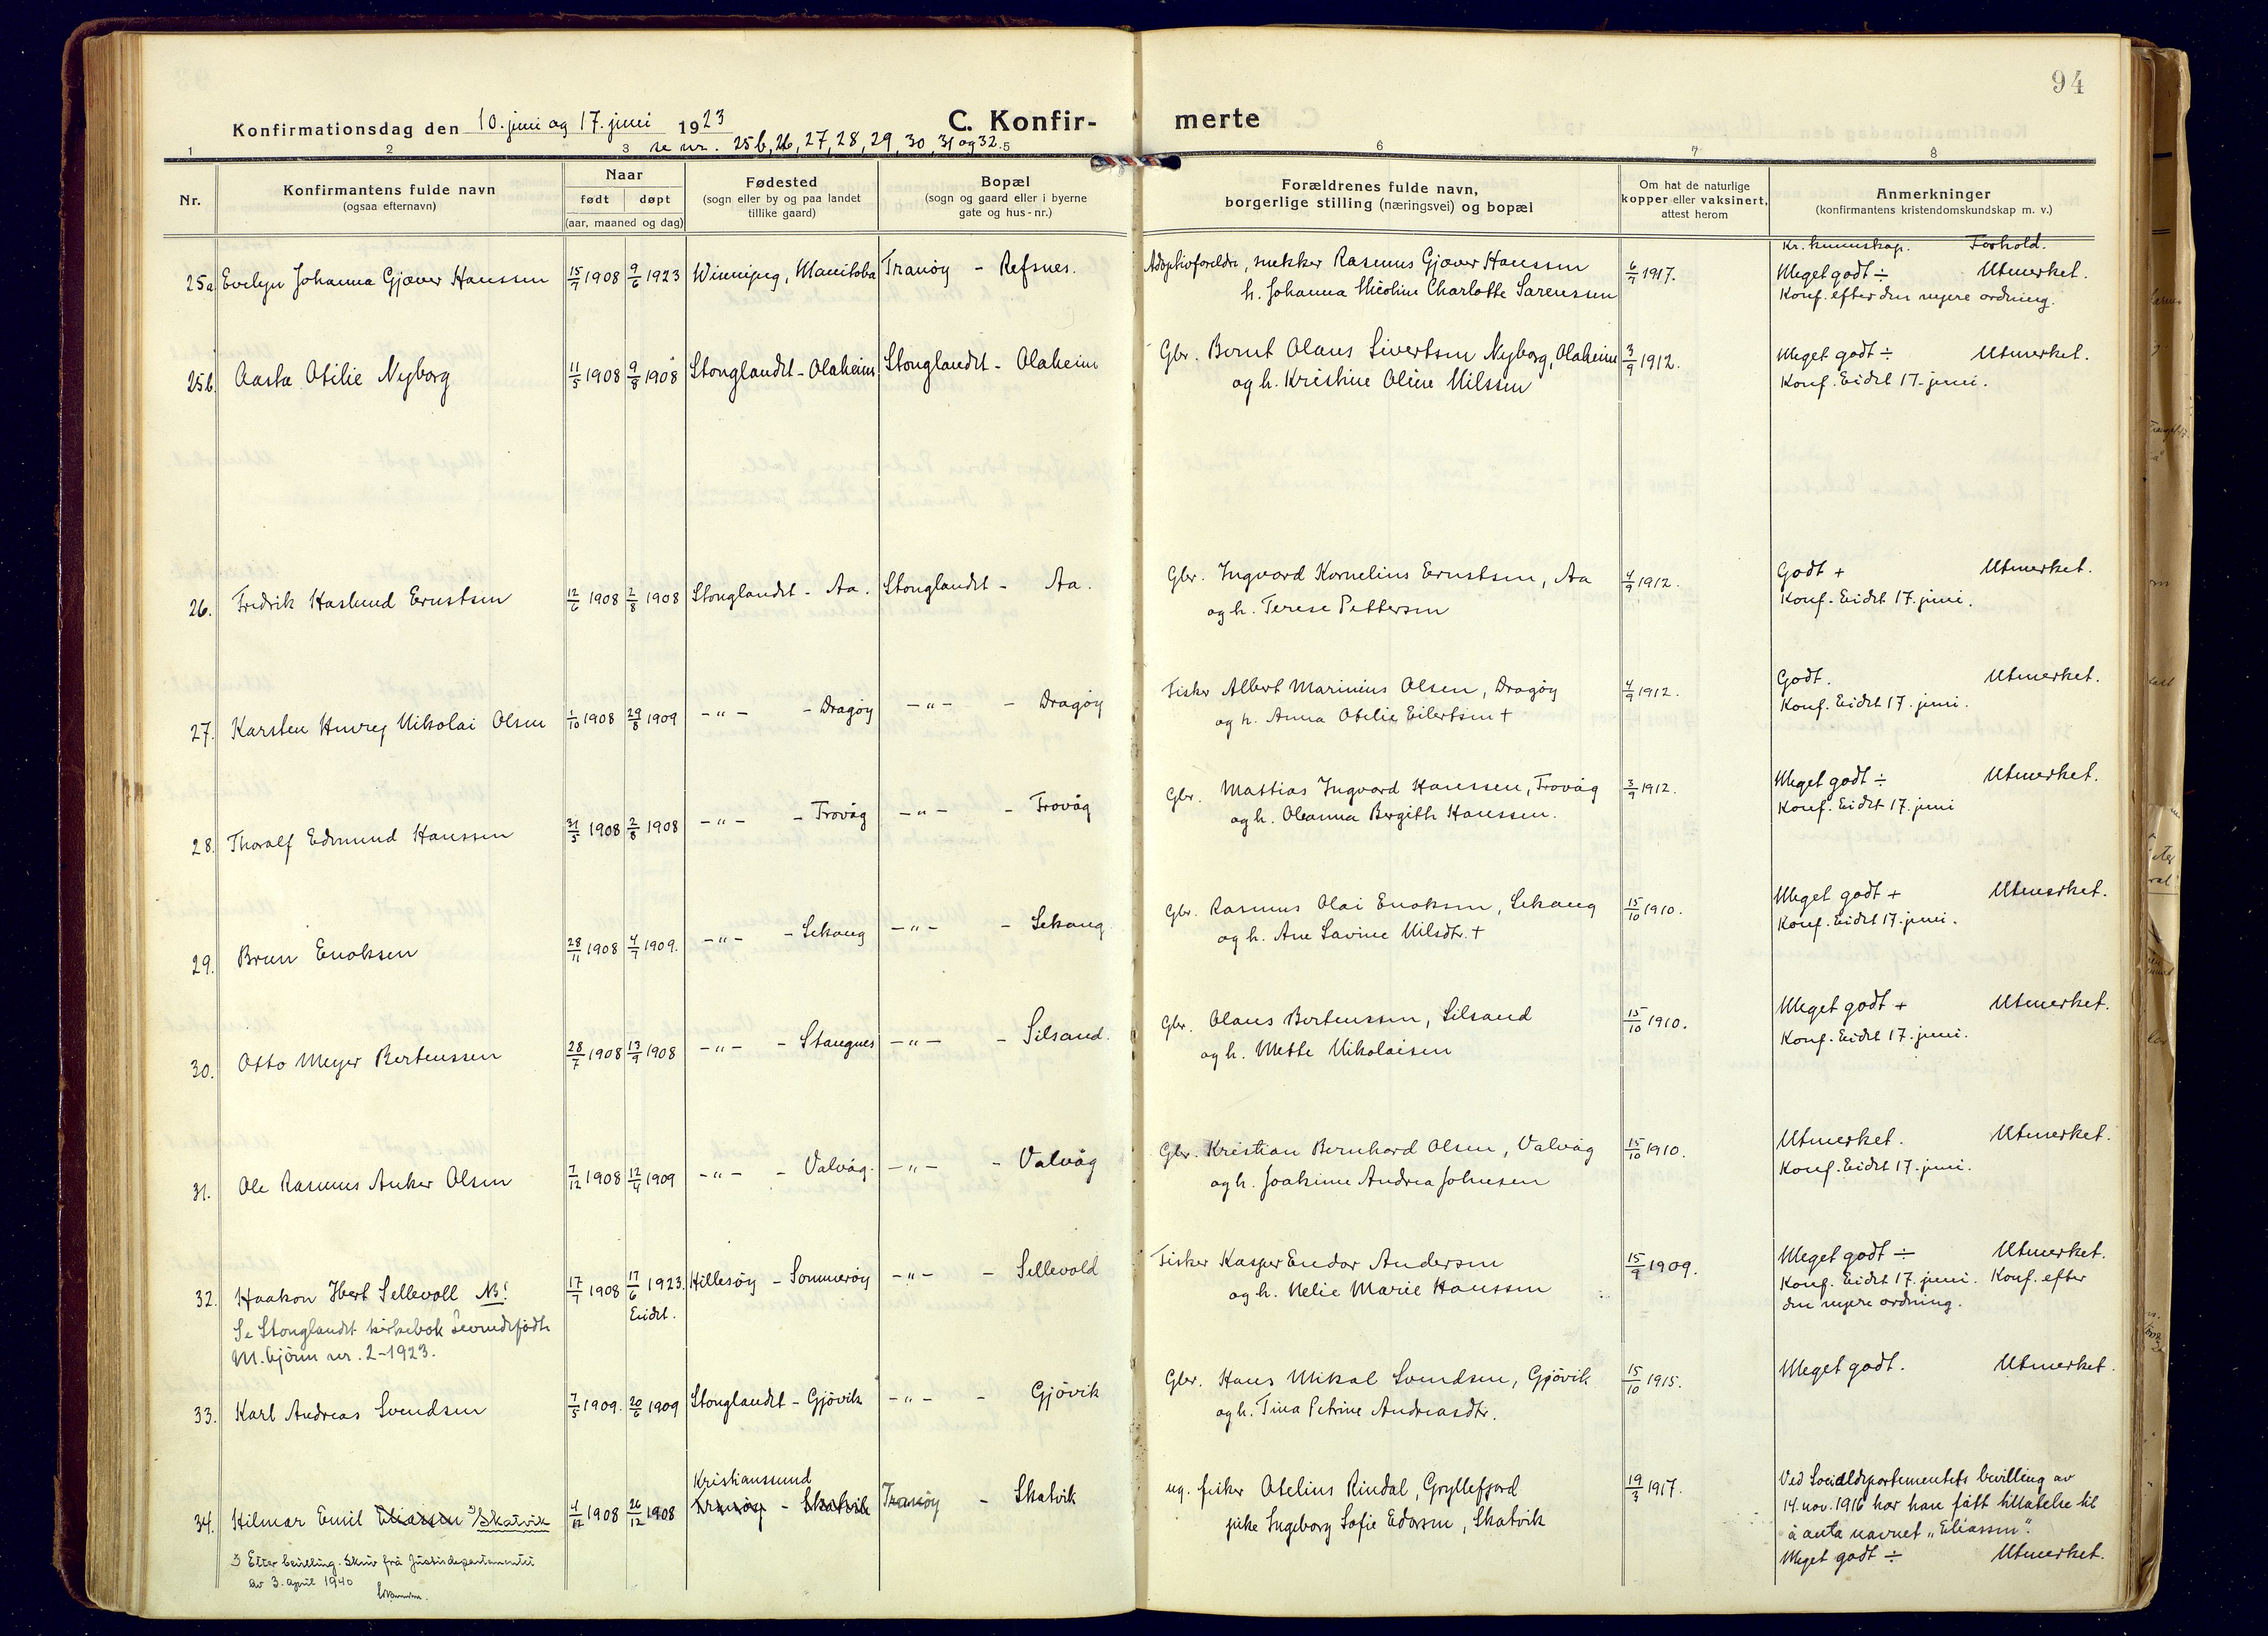 94
Konfirmationsdag den 10. juni og 17. juni 1923
C. Konfirmerte
se nr. 25b, 26, 27, 28, 29, 30, 31 og 32.
1 2 3 5 6 7 8
Nr.
Konfirmantens fulde navn
(ogsaa efternavn)
Naar
født døpt
(aar, maaned og dag)
Fødested
(sogn eller by og paa landet
tillike gaard)
Bopæl
(sogn og gaard eller i byerne
gate og hus-nr.)
Forældrenes fulde navn,
borgerlige stilling (næringsvei) og bopæl
Om hat de naturlige
kopper eller vaksinert,
attest herom
Anmerkninger
(konfirmantens kristendomskundskap m. v.)
Kr. kunnskap. Forhold.
25a Evelyn Johanna Gjæver Hanssen 15/7 1908 9/6 1923 Winnipeg, Manitoba Tranöy - Refsnes. Adoptivforeldre, snekker Rasmus Gjæver Hanssen 6/7 1917. Meget godt ÷ Utmerket.
h. Johanna Nicoline Charlotte Sørenssen Konf. efter den nyere ordning.
25b. Aasta Otilie Nyborg 11/5 1908 9/8 1908 Stonglandet - Olaheim Stonglandet - Olaheim Gbr. Bernt Olaus Sivertsen Nyborg, Olaheim 3/9 1912. Meget godt ÷ Utmerket.
og h. Kristine Oline Nilssen Konf. Eidet 17. juni.
26. Fredrik Haslund Ernstsen 12/6 1908 2/8 1908 Stonglandet - Aa. Stonglandet - Aa. Gbr. Ingvard Kornelius Ernstsen, Aa 4/9 1912. Godt + Utmerket.
og h. Terese Pettersen Konf. Eidet 17. juni.
27. Karsten Henrey Nikolai Olsen 1/10 1908 29/8 1909 -"- - Dragöy -"- - Dragöy Fisker Albert Marinius Olsen, Dragöy 4/9 1912. Godt. Utmerket.
og h. Anna Otelie Eilertsen + Konf. Eidet 17. juni.
28. Thoralf Edmund Hanssen 31/5 1908 2/8 1908 -"- - Trovåg -"- - Trovåg Gbr. Mattias Ingvard Hanssen, Trovåg 3/9 1912. Meget godt ÷ Utmerket.
og h. Oleanna Bergith Hanssen. Konf. Eidet 17. juni
29. Brun Enoksen 28/11 1908 4/7 1909. -"- - Lekang -"- - Lekang Gbr. Rasmus Olai Enoksen, Lekang 15/10 1910. Meget godt + Utmerket.
og h. Ane Savine Nilsdtr. + Konf. Eidet 17. juni.
30. Otto Meyer Bertenssen 28/7 1908 13/9 1908 -"- - Stangnes -"- - Silsand. Gbr. Olaus Bertenssen, Silsand 15/10 1910. Meget godt + Utmerket.
og h. Mette Nikolaisen Konf. Eidet 17. juni.
31. Ole Rasmus Anker Olsen 7/12 1908 12/4 1909 -"- - Valvåg. -"- - Valvåg Gbr. Kristian Bernhard Olsen, Valvåg 15/10 1910. Utmerket. Utmerket.
og h. Joakime Andrea Johnsen Konf. Eidet 17. juni.
32. Haakon Hert Sellevoll NB! 17/7 1908 17/6 1923. Hillesöy - Sommeröy -"- - Sellevold Fisker Kasper Endor Andersen 15/9 1909. Meget godt ÷ Utmerket.
Eidet. og h. Nelie Marie Hanssen Konf. Eidet 17. juni. Konf. efter
Se Stonglandet kirkebok Levendefödte den nyere ordning.
M.kjönn nr. 2-1923.
33. Karl Andreas Svendsen 7/5 1909. 20/6 1909 Stonglandet - Gjövik -"- - Gjövik Gbr. Hans Mikal Svendsen, Gjövik 15/10 1915. Meget godt. Utmerket.
og h. Tina Petrine Andreasdtr.
Kristianssund
34. Hilmar Emil Eliassen ˣ⁾Skatvik 4/12 1908 26/12 1908 Tranöy - Skatvik Tranöy - Skatvik ug. fisker Otelius Rindal, Gryllefjord 19/3 1917. Ved Socialdepartementets bevilling av
pike Ingeborg Sofie Edorsen, Skatvik 14. nov. 1916 har han fått tillatelse til
å anta navnet "Eliassen".
Meget godt ÷ Utmerket.
ˣ⁾ Etter bevilling. Skriv frå Justisdepartementet
av 3. april 1940